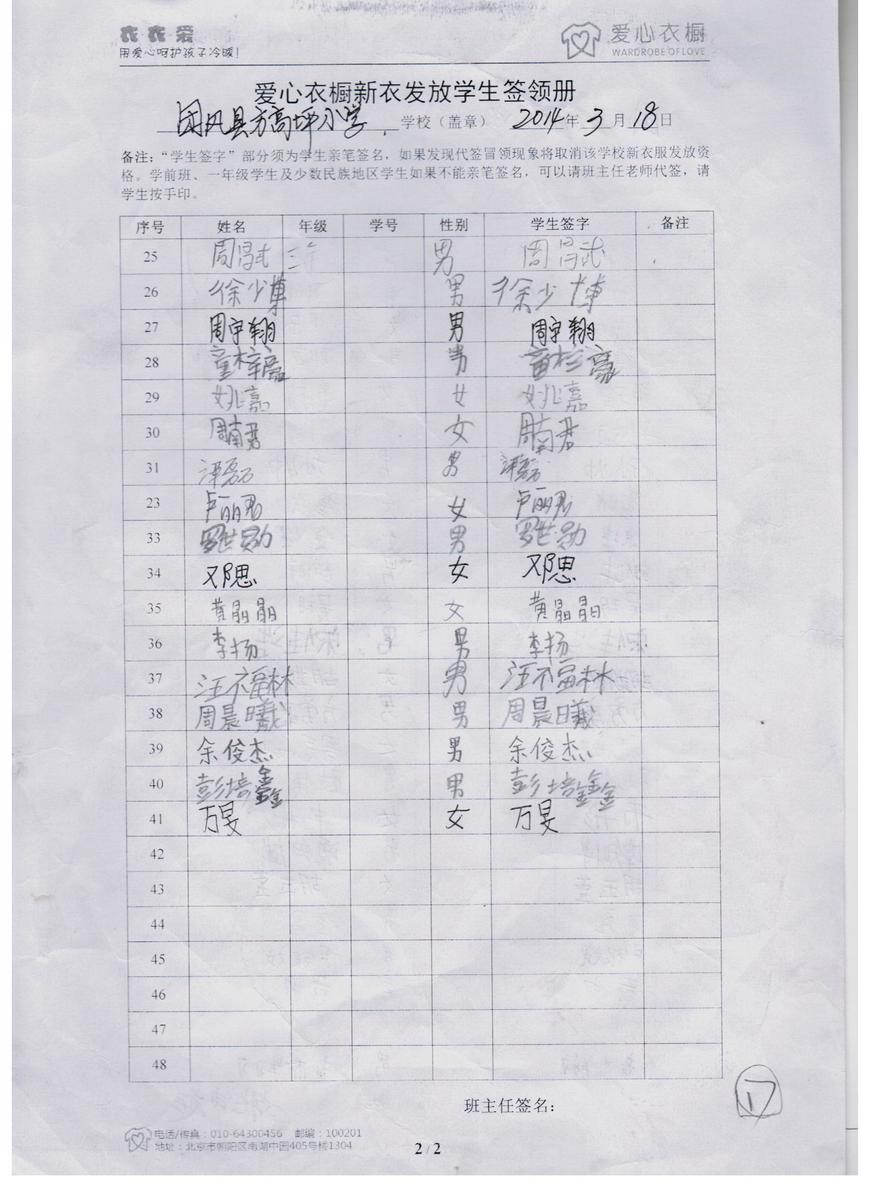 衣衣爱
用爱心呵护孩子冷暖！
爱心衣橱
WARDROBE OF LOVE
爱心衣橱新衣发放学生签领册
团风县方高坪小学 学校（盖章） 2014年3月18日
备注：“学生签字”部分须为学生亲笔签名，如果发现代签冒领现象将取消该学校新衣服发放资
格。学前班、一年级学生及少数民族地区学生如果不能亲笔签名，可以请班主任老师代签，请
学生按手印。
序号 姓名 年级 学号 性别 学生签字 备注
25 周昌武 男 周昌武
26 徐少博 男 徐少博
27 周宇翔 男 周宇翔
28 童梓豪 男 童梓豪
29 姚嘉 女 姚嘉
30 周南君 女 周南君
31 男
23 卢丽君 女 卢丽君
33 罗世勋 男 罗世勋
34 邓思 女 邓思
35 黄晶晶 女 黄晶晶
36 李扬 男 李扬
37 汪福林 男 汪福林
38 周晨曦 男 周晨曦
39 余俊杰 男 余俊杰
40 彭培鑫 男 彭培鑫
41 万旻 女 万旻
42
43
44
45
46
47
48
17
班主任签名：
电话/传真：010-64300456 邮编：100201
地址：北京市朝阳区南湖中园405号楼1304
2 / 2